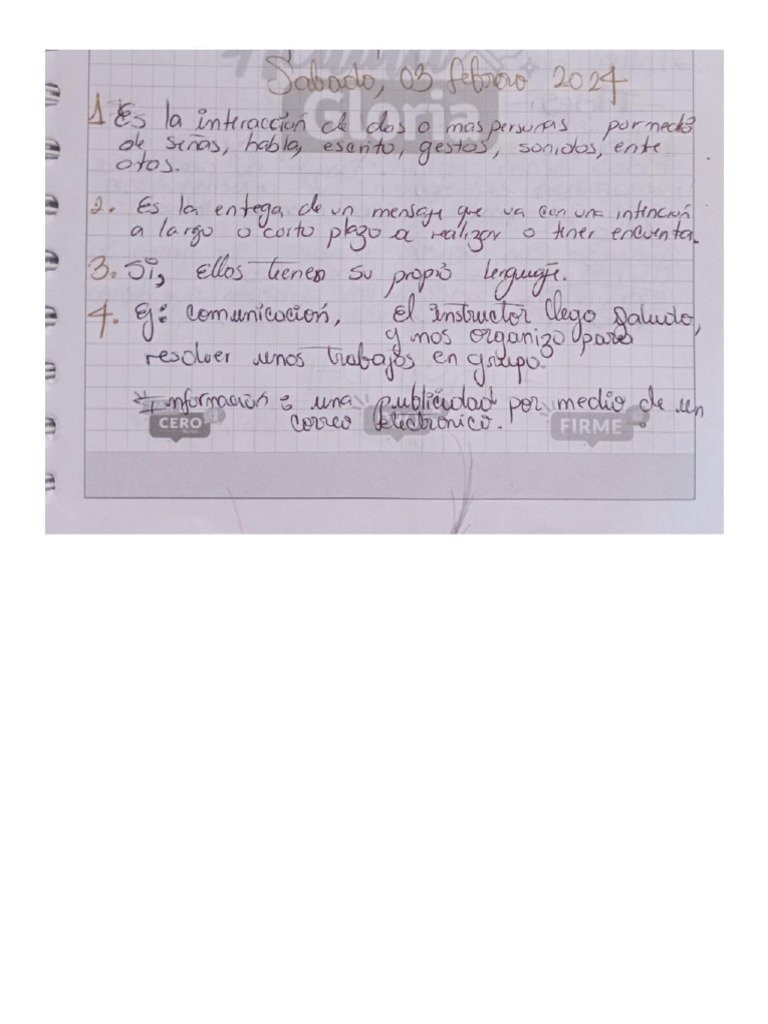 Sabado, 03 febrero 2024
Gloria
1 Es la interacción de dos o mas personas por medio
de señas, habla, escrito, gestos, sonidos, ente
otos.
2. Es la entega de un mensaje que va con una intención
a largo o corto plazo a realizar o tener encuenta.
3. Si, Ellos tienen su propio lenguaje.
4. Ej: comunicación, el instructor llego saludo,
y nos organizo para
resolver unos trabajos en grupo.
* Información : una publicidad por medio de un
correo electronico.
CERO
FIRME